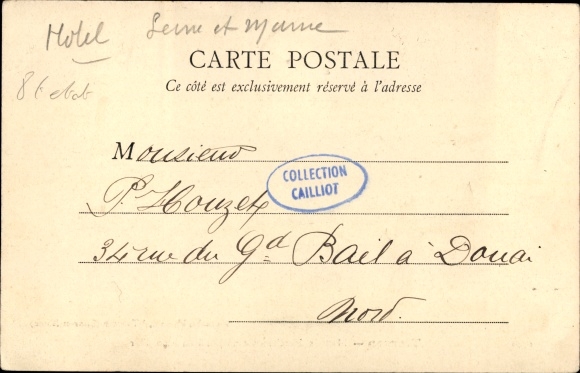 Hotel Seine et Marne
CARTE POSTALE
Ce côté est exclusivement réservé à l'adresse
Monsieur
COLLECTION
CAILLIOT
P. Houzet
34 rue du Gd Bail à Douai
Nord.